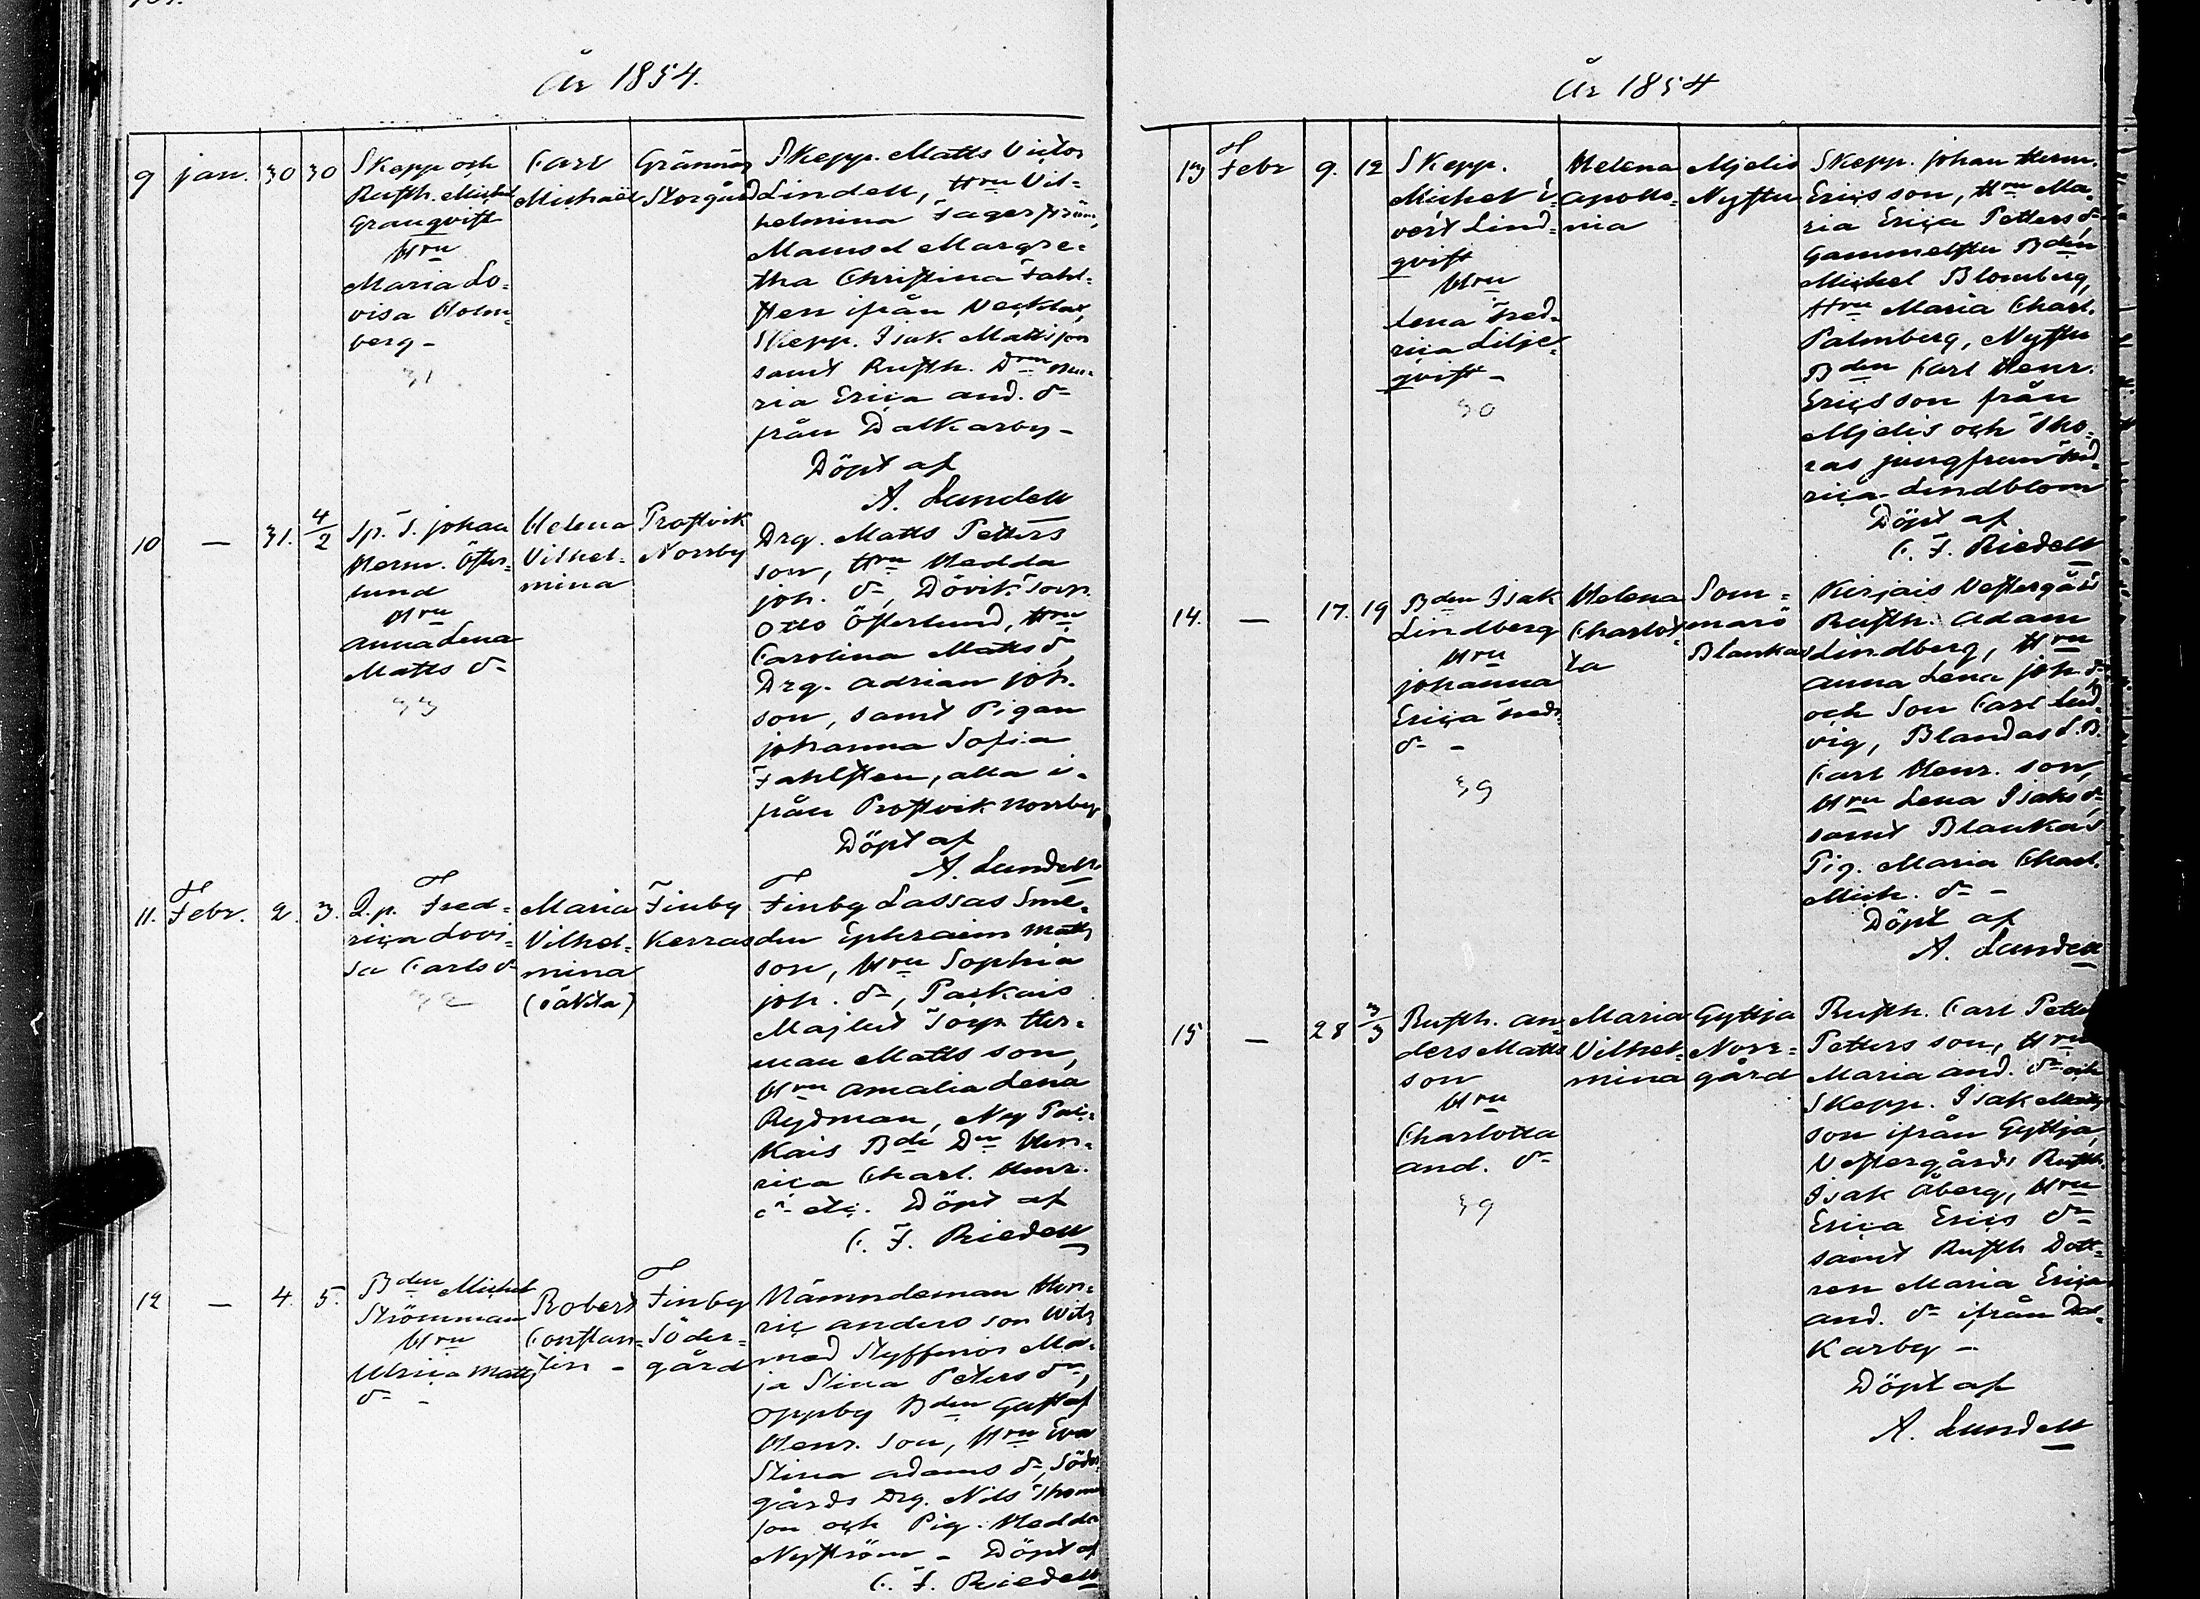 År 1854.
9 jan. 30 30
Skepp och
Rusth. Michel
Granqvist
Hru
Maria Lo-
visa Holm-
berg -
31
Carl
Michaël
Grännäs
Storgård
Skepp. Matts Victor
Lindell, Hru Vil-
helmina Fagerström,
Mamsel Margre-
tha Christina Fahl-
sten ifrån
Skepp. Isak Mattsson
samt Rusth. Drn Ma-
ria Erica and. dr
från Dalkarby -
Döpt af
A. Lundell
10 — 31. 4/2
Sp. T. johan
Herm. Öster-
lund
Hru
anna Lena
Matts dr
33
Helena
Vilhel-
mina
Prostvik
Norrby
Drg. Matts Petters
son, Hru Hedda
joh. dr, Dövik Torp.
Otto Österlund, Hru
Carolina Matts dr,
Drg. adrian joh.
son, samt Pigan
johanna Sofia
Fahlsten, alla i-
från Prostvik Norrby
Döpt af
A. Lundell
11. Febr. 2. 3.
Q.p. Fred-
rica Lovi-
sa Carls dr
32
Maria
Vilhel-
mina
(oäkta)
Finby
Kerras
Finby Lassas Sme-
den Ephraim Matts
son, Hru Sophia
joh. dr, Parkais
Majlut Torp. Her-
man Matts son,
Hru amalia Lena
Rydman, Ny Par-
kais Bde Dn Hen-
rica Charl. Henr.
dr etc. Döpt af
C. F. Riedell
12 — 4. 5.
Bden Michel
Strömman
Hru
Ulrica Matts
dr -
Robert
Constan-
tin -
Finby
Söder-
gård
Nämndeman Hen-
ric anders son Wits
med Styfmor Ma-
ja Stina Peters dr,
Oppby Bden Gustaf
Henr. son, Hru Eva
Stina adams dr, Söder-
gårds Drg. Nils Thomas
son och Pig. Hedda
Nyström - Döpt af
C. F. Riedell
År 1854
13 Febr 9. 12
Skepp.
Michel i-
vert Lind-
qvist
Hru
Lena Fred-
rica Lilje-
qvist -
30
Helena
apollo-
nia
Mjelis
Nystu
Skepp. johan Herm.
Ericsson, Hru Ma-
ria Erica Petters dr
Gammelstu Bden
Michel Blomberg,
Hru Maria Charl.
Palmberg, Nystu
Bden Carl Henr.
Ericsson från
Mjelis och Tho-
ras jungfrun Fred-
rica Lindblom
Döpt af
C. F. Riedell
14. — 17. 19
Bden Isak
Lindberg
Hru
johanna
Erica Fredr.
dr -
39
Helena
Charlot-
ta
Som-
marö
Blankas
Kirjais Vestergård
Rusth. Adam
Lindberg, Hru
anna Lena joh. dr
och Son Carl Lud-
vig, Blandas L.B.
Carl Henr. son,
Hru Lena Isaks dr,
samt Blankas
Pig. Maria Charl.
Mich. dr -
Döpt af
A. Lundell
15 — 28 3/3
Rusth. an-
ders Matts
son
Hru
Charlotta
and. dr
39
Maria
Vilhel-
mina
Gyttja
Norr-
gård
Rusth. Carl Petter
Petters son, Hru
Maria and. dr och
Skepp. Isak Matts
son ifrån Gyttja,
Vestergårds Rusth.
Isak Åberg, Hru
Erica Erics dr
samt Rusth Dott-
ren Maria Erica
and. dr ifrån Dal-
Karby -
Döpt af
A. Lundell